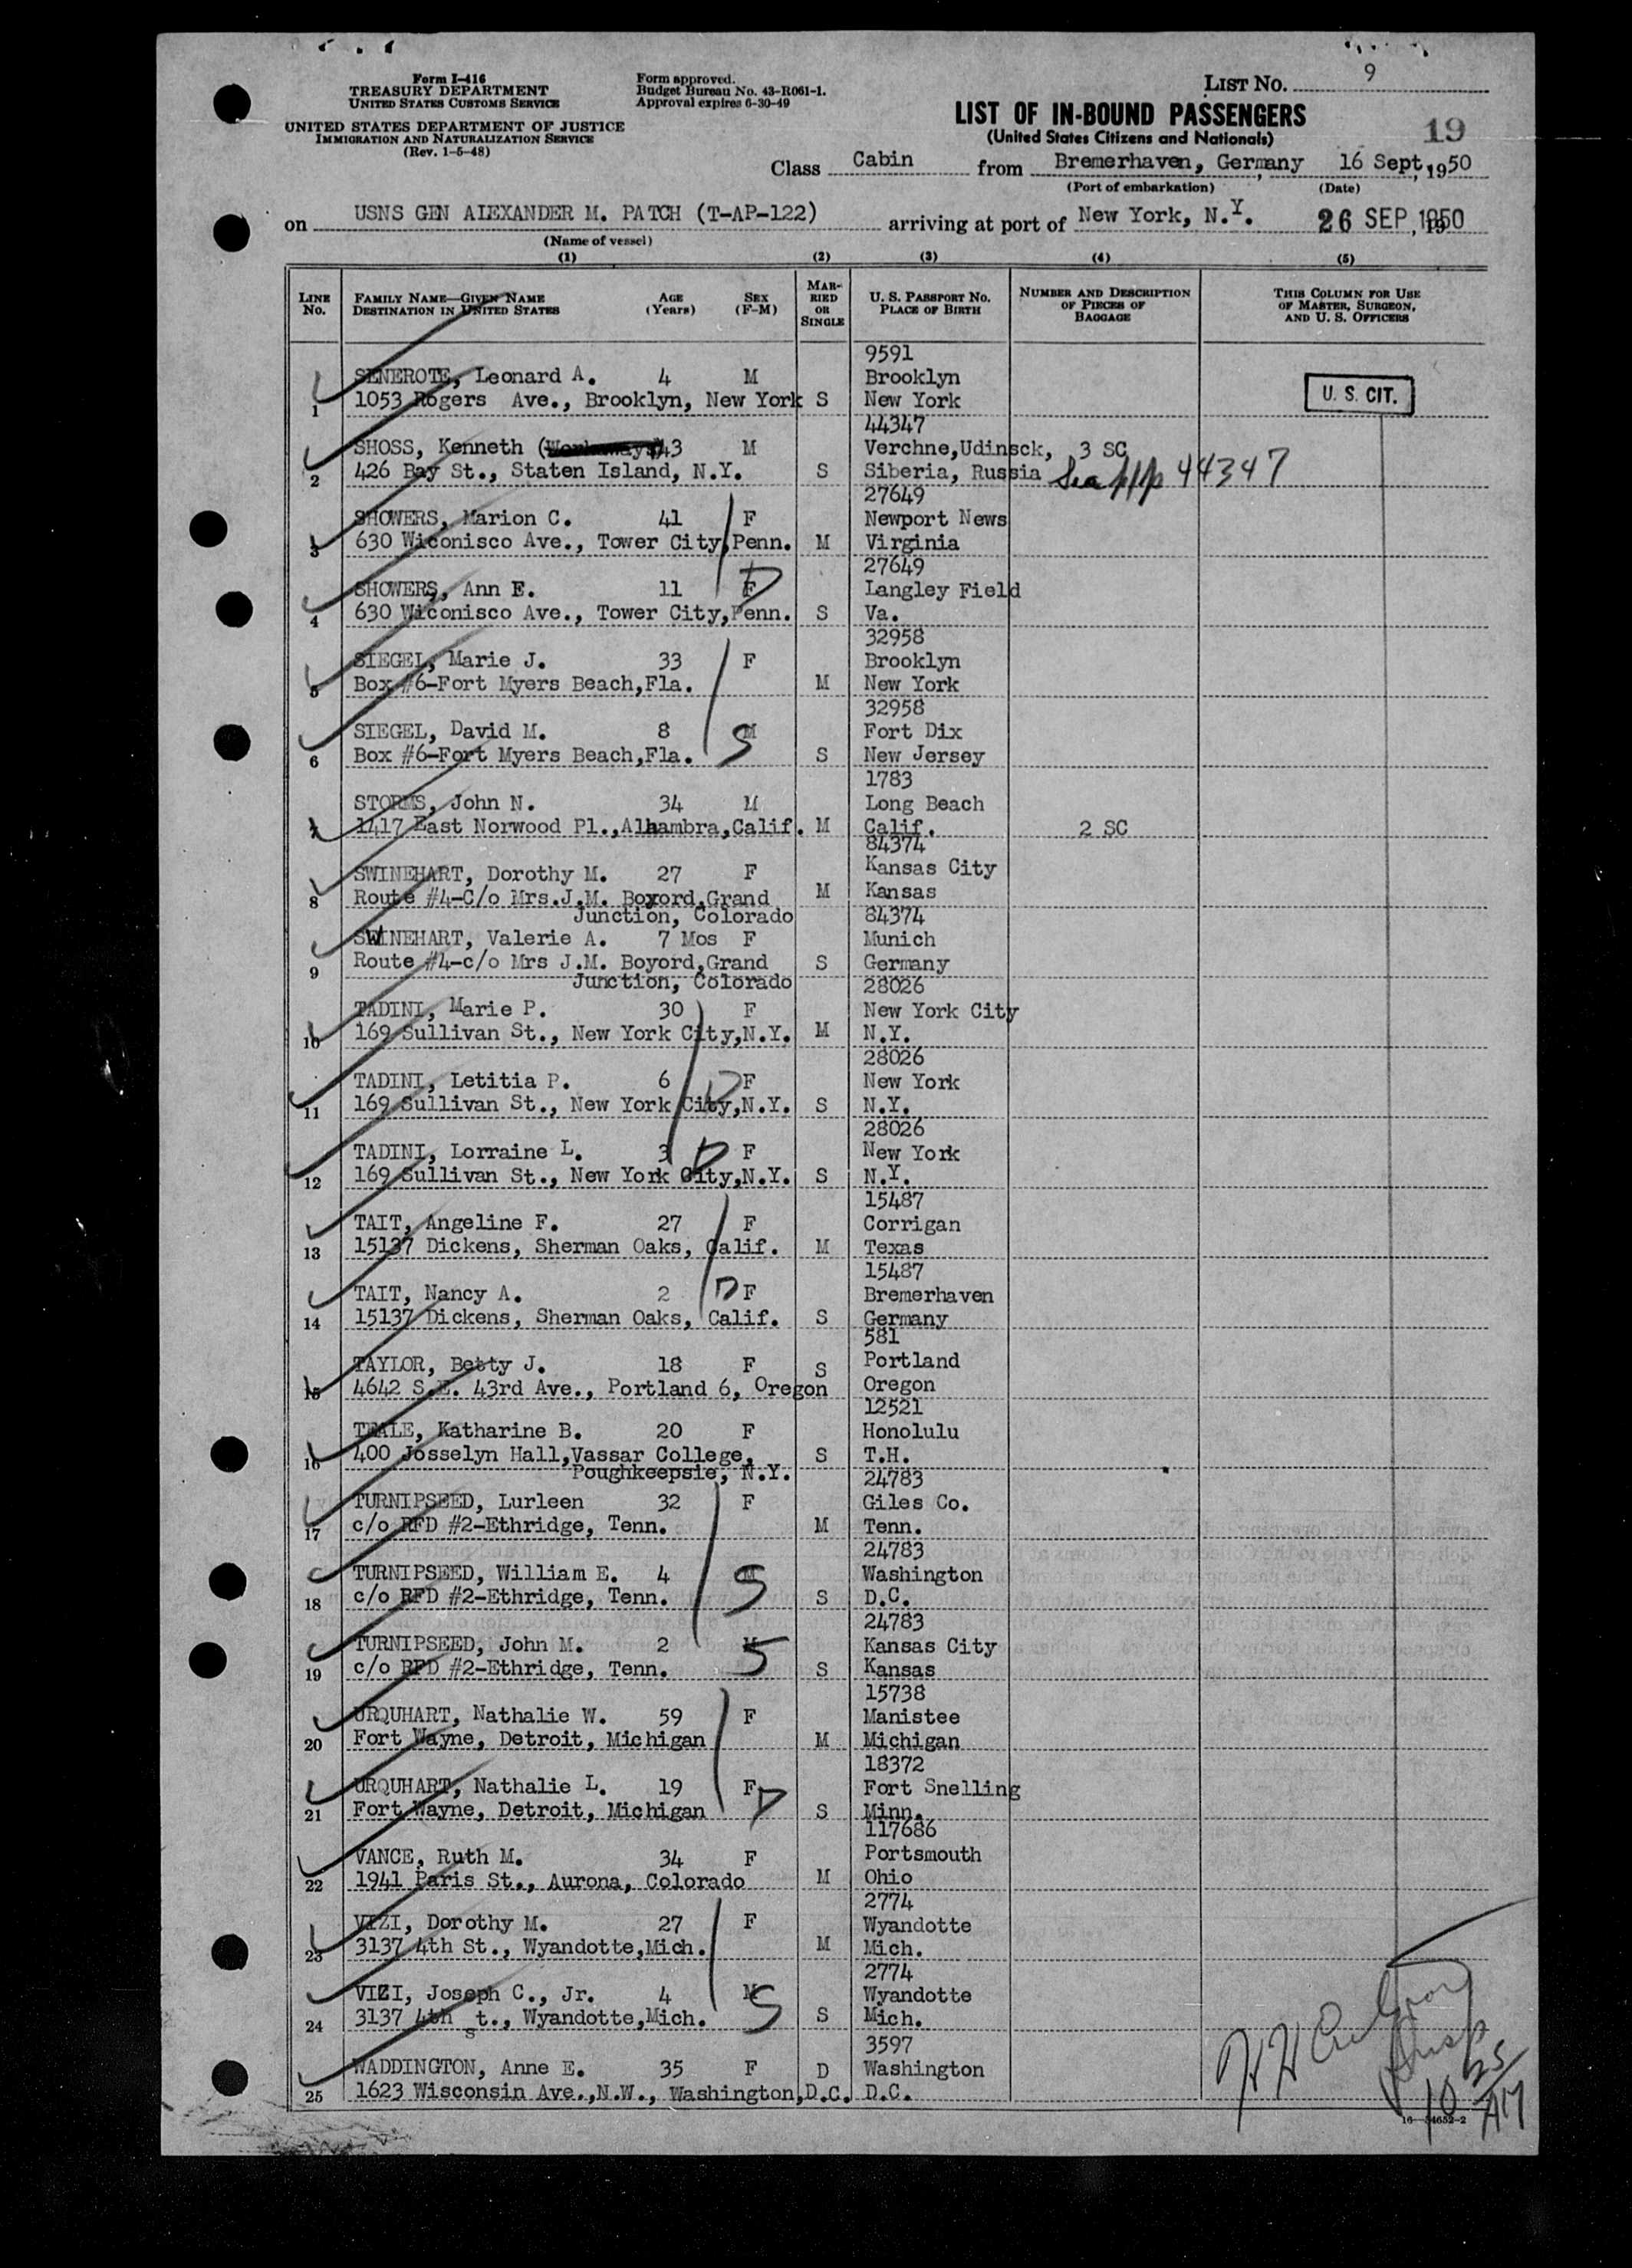 Form I-416
TREASURY DEPARTMENT
UNITED STATES CUSTOMS SERVICE
UNITED STATES DEPARTMENT OF JUSTICE
IMMIGRATION AND NATURALIZATION SERVICE
(Rev. 1-5-48)
Form approved.
Budget Bureau No. 43-R061-1.
Approval expires 6-30-49
LIST NO. 9
LIST OF IN-BOUND PASSENGERS
(United States Citizens and Nationals)
19
Class Cabin from Bremerhaven, Germany, 16 Sept, 1950
(Port of embarkation) (Date)
on USNS GEN ALEXANDER M. PATCH (T-AP-122) arriving at port of New York, N.Y. 26 SEP 1950
(Name of vessel)
(1) (2) (3) (4) (5)
LINE No. FAMILY NAME—GIVEN NAME DESTINATION IN UNITED STATES AGE (Years) SEX (F-M) MARRIED OR SINGLE U. S. PASSPORT NO. PLACE OF BIRTH NUMBER AND DESCRIPTION OF PIECES OF BAGGAGE THIS COLUMN FOR USE OF MASTER, SURGEON, AND U. S. OFFICERS
9591
SENEROTE, Leonard A. 4 M Brooklyn
1 1053 Rogers Ave., Brooklyn, New York S New York U. S. CIT.
44347
SHOSS, Kenneth 43 M Verchne,Udinsck, 3 SC
2 426 Bay St., Staten Island, N.Y. S Siberia, Russia Sea ppp 44347
27649
SHOWERS, Marion C. 41 F Newport News
3 630 Wiconisco Ave., Tower City,Penn. M Virginia
27649
SHOWERS, Ann E. 11 F Langley Field
4 630 Wiconisco Ave., Tower City,Penn. S Va.
32958
SIEGEL, Marie J. 33 F Brooklyn
5 Box #6-Fort Myers Beach,Fla. M New York
32958
SIEGEL, David M. 8 M Fort Dix
6 Box #6-Fort Myers Beach,Fla. S New Jersey
1783
STORMS, John N. 34 M Long Beach
7 1417 East Norwood Pl.,Alhambra,Calif. M Calif. 2 SC
84374
SWINEHART, Dorothy M. 27 F Kansas City
8 Route #4-C/o Mrs.J.M. Boyord,Grand M Kansas
Junction, Colorado 84374
SWINEHART, Valerie A. 7 Mos F Munich
9 Route #4-c/o Mrs J.M. Boyord,Grand S Germany
Junction, Colorado 28026
TADINI, Marie P. 30 F New York City
10 169 Sullivan St., New York City,N.Y. M N.Y.
28026
TADINI, Letitia P. 6 F New York
11 169 Sullivan St., New York City,N.Y. S N.Y.
28026
TADINI, Lorraine L. 3 F New York
12 169 Sullivan St., New York City,N.Y. S N.Y.
15487
TAIT, Angeline F. 27 F Corrigan
13 15137 Dickens, Sherman Oaks, Calif. M Texas
15487
TAIT, Nancy A. 2 F Bremerhaven
14 15137 Dickens, Sherman Oaks, Calif. S Germany
581
TAYLOR, Betty J. 18 F S Portland
15 4642 S.E. 43rd Ave., Portland 6, Oregon Oregon
12521
TEALE, Katharine B. 20 F Honolulu
16 400 Josselyn Hall,Vassar College, S T.H.
Poughkeepsie, N.Y. 24783
TURNIPSEED, Lurleen 32 F Giles Co.
17 c/o RFD #2-Ethridge, Tenn. M Tenn.
24783
TURNIPSEED, William E. 4 M Washington
18 c/o RFD #2-Ethridge, Tenn. S D.C.
24783
TURNIPSEED, John M. 2 M Kansas City
19 c/o RFD #2-Ethridge, Tenn. S Kansas
15738
URQUHART, Nathalie W. 59 F Manistee
20 Fort Wayne, Detroit, Michigan M Michigan
18372
URQUHART, Nathalie L. 19 F Fort Snelling
21 Fort Wayne, Detroit, Michigan S Minn.
117686
VANCE, Ruth M. 34 F Portsmouth
22 1941 Paris St., Aurona, Colorado M Ohio
2774
VIZI, Dorothy M. 27 F Wyandotte
23 3137 4th St., Wyandotte,Mich. M Mich.
2774
VIZI, Joseph C., Jr. 4 M Wyandotte
24 3137 4th st., Wyandotte,Mich. S Mich.
3597
WADDINGTON, Anne E. 35 F D Washington
25 1623 Wisconsin Ave.,N.W., Washington,D.C. D.C.
16—54652-2